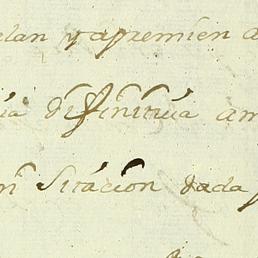 elan y apremien a
ia difinitiva am
n Sitacion dada